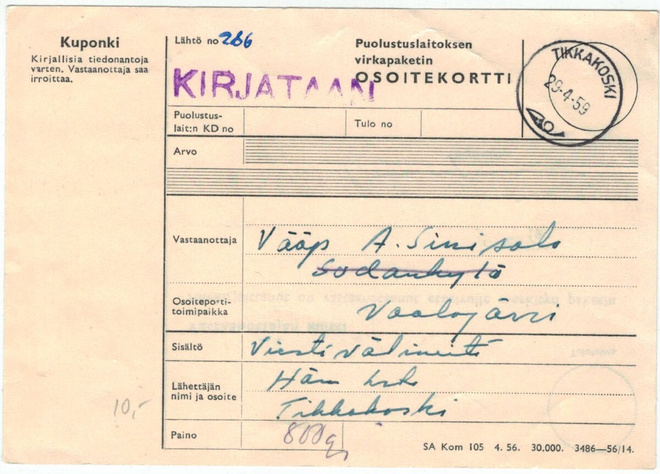 Kuponki
Kirjallisia tiedonantoja
varten. Vastaanottaja saa
irroittaa.
Lähtö no 266
Puolustuslaitoksen
virkapaketin
OSOITEKORTTI
KIRJATAAN
TIKKAKOSKI
29-4-59
Puolustus-
lait:n KD no
Tulo no
Arvo
Vastaanottaja
Vääp A. Sinisalo
Sodankylä
Osoiteposti-
toimipaikka
Vaalojärvi
Sisältö
Viestivälineitä
Lähettäjän
nimi ja osoite
Häm
Tikkakoski
Paino
800 g
10,-
SA Kom 105 4. 56. 30.000. 3486—56/14.